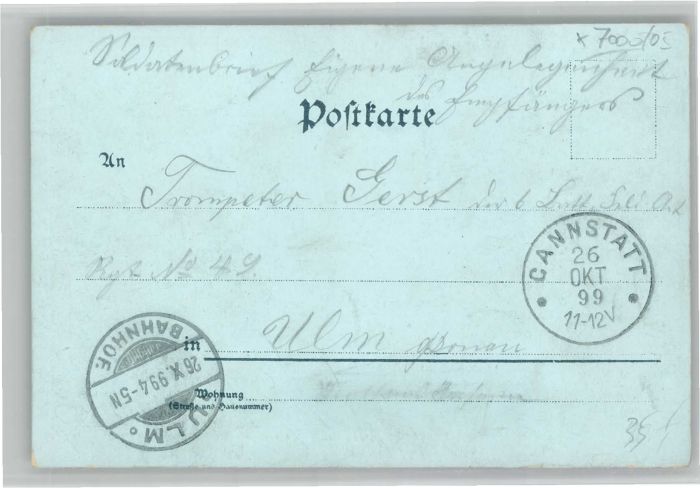 x 7000/05
Soldatenbrief Eigene Angelegenheit
des Empfängers
Postkarte
An
Trompeter Gerst der 6 Batt. Feld Art
Rgt No 49.
CANNSTATT
26
OKT
99
11-12V
in Ulm Donau
ULM BAHNHOF.
26 X. 99. 4-5N
Wohnung
(Straße und Hausnummer)
35